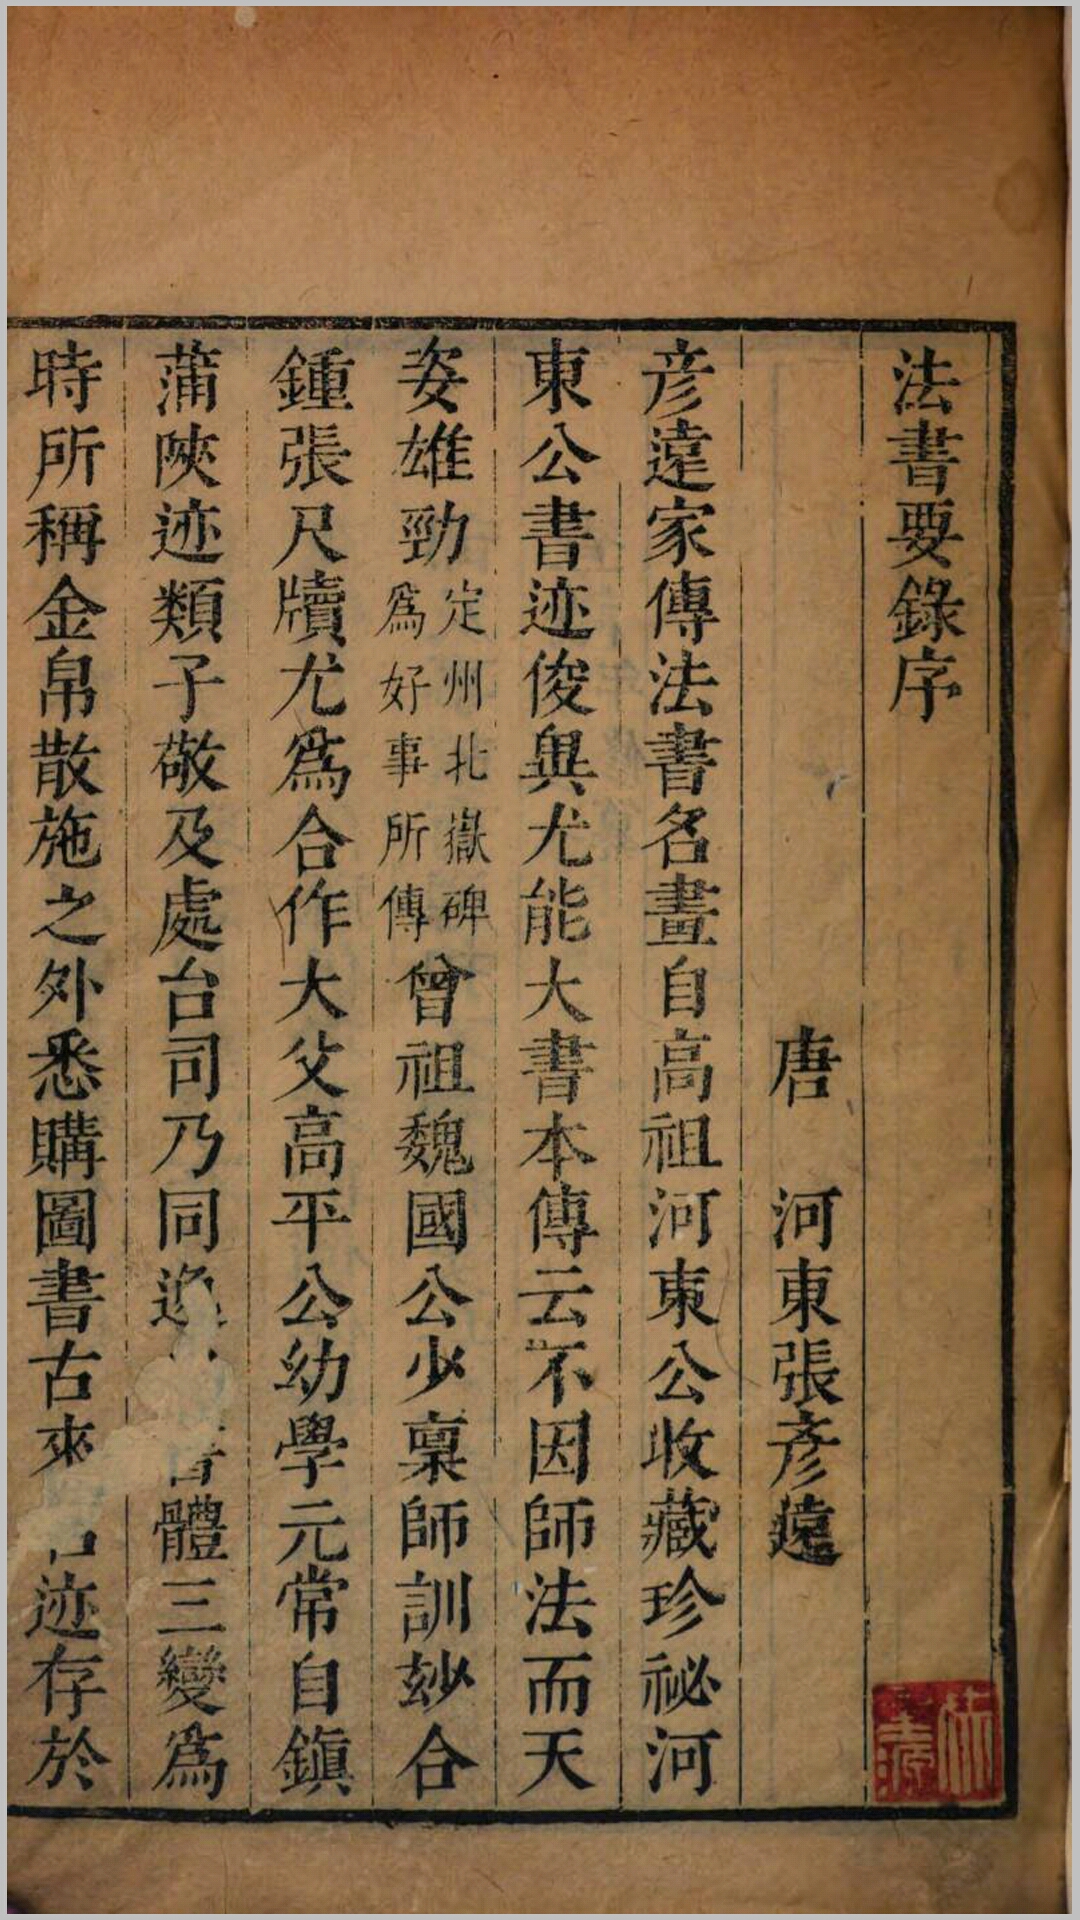 法書要錄序
唐 河東張彥遠
彥遠家傳法書名畫自高祖河東公收藏珍祕河
東公書迹俊異尤能大書本傳云不因師法而天
姿雄勁定州北嶽碑為好事所傳曾祖魏國公少稟師訓玅合
鍾張尺牘尤爲合作大父高平公幼學元常自鎮
蒲陝迹類子敬及處台司乃同逸書體三變爲
時所稱金帛散施之外悉購圖書古來迹存於